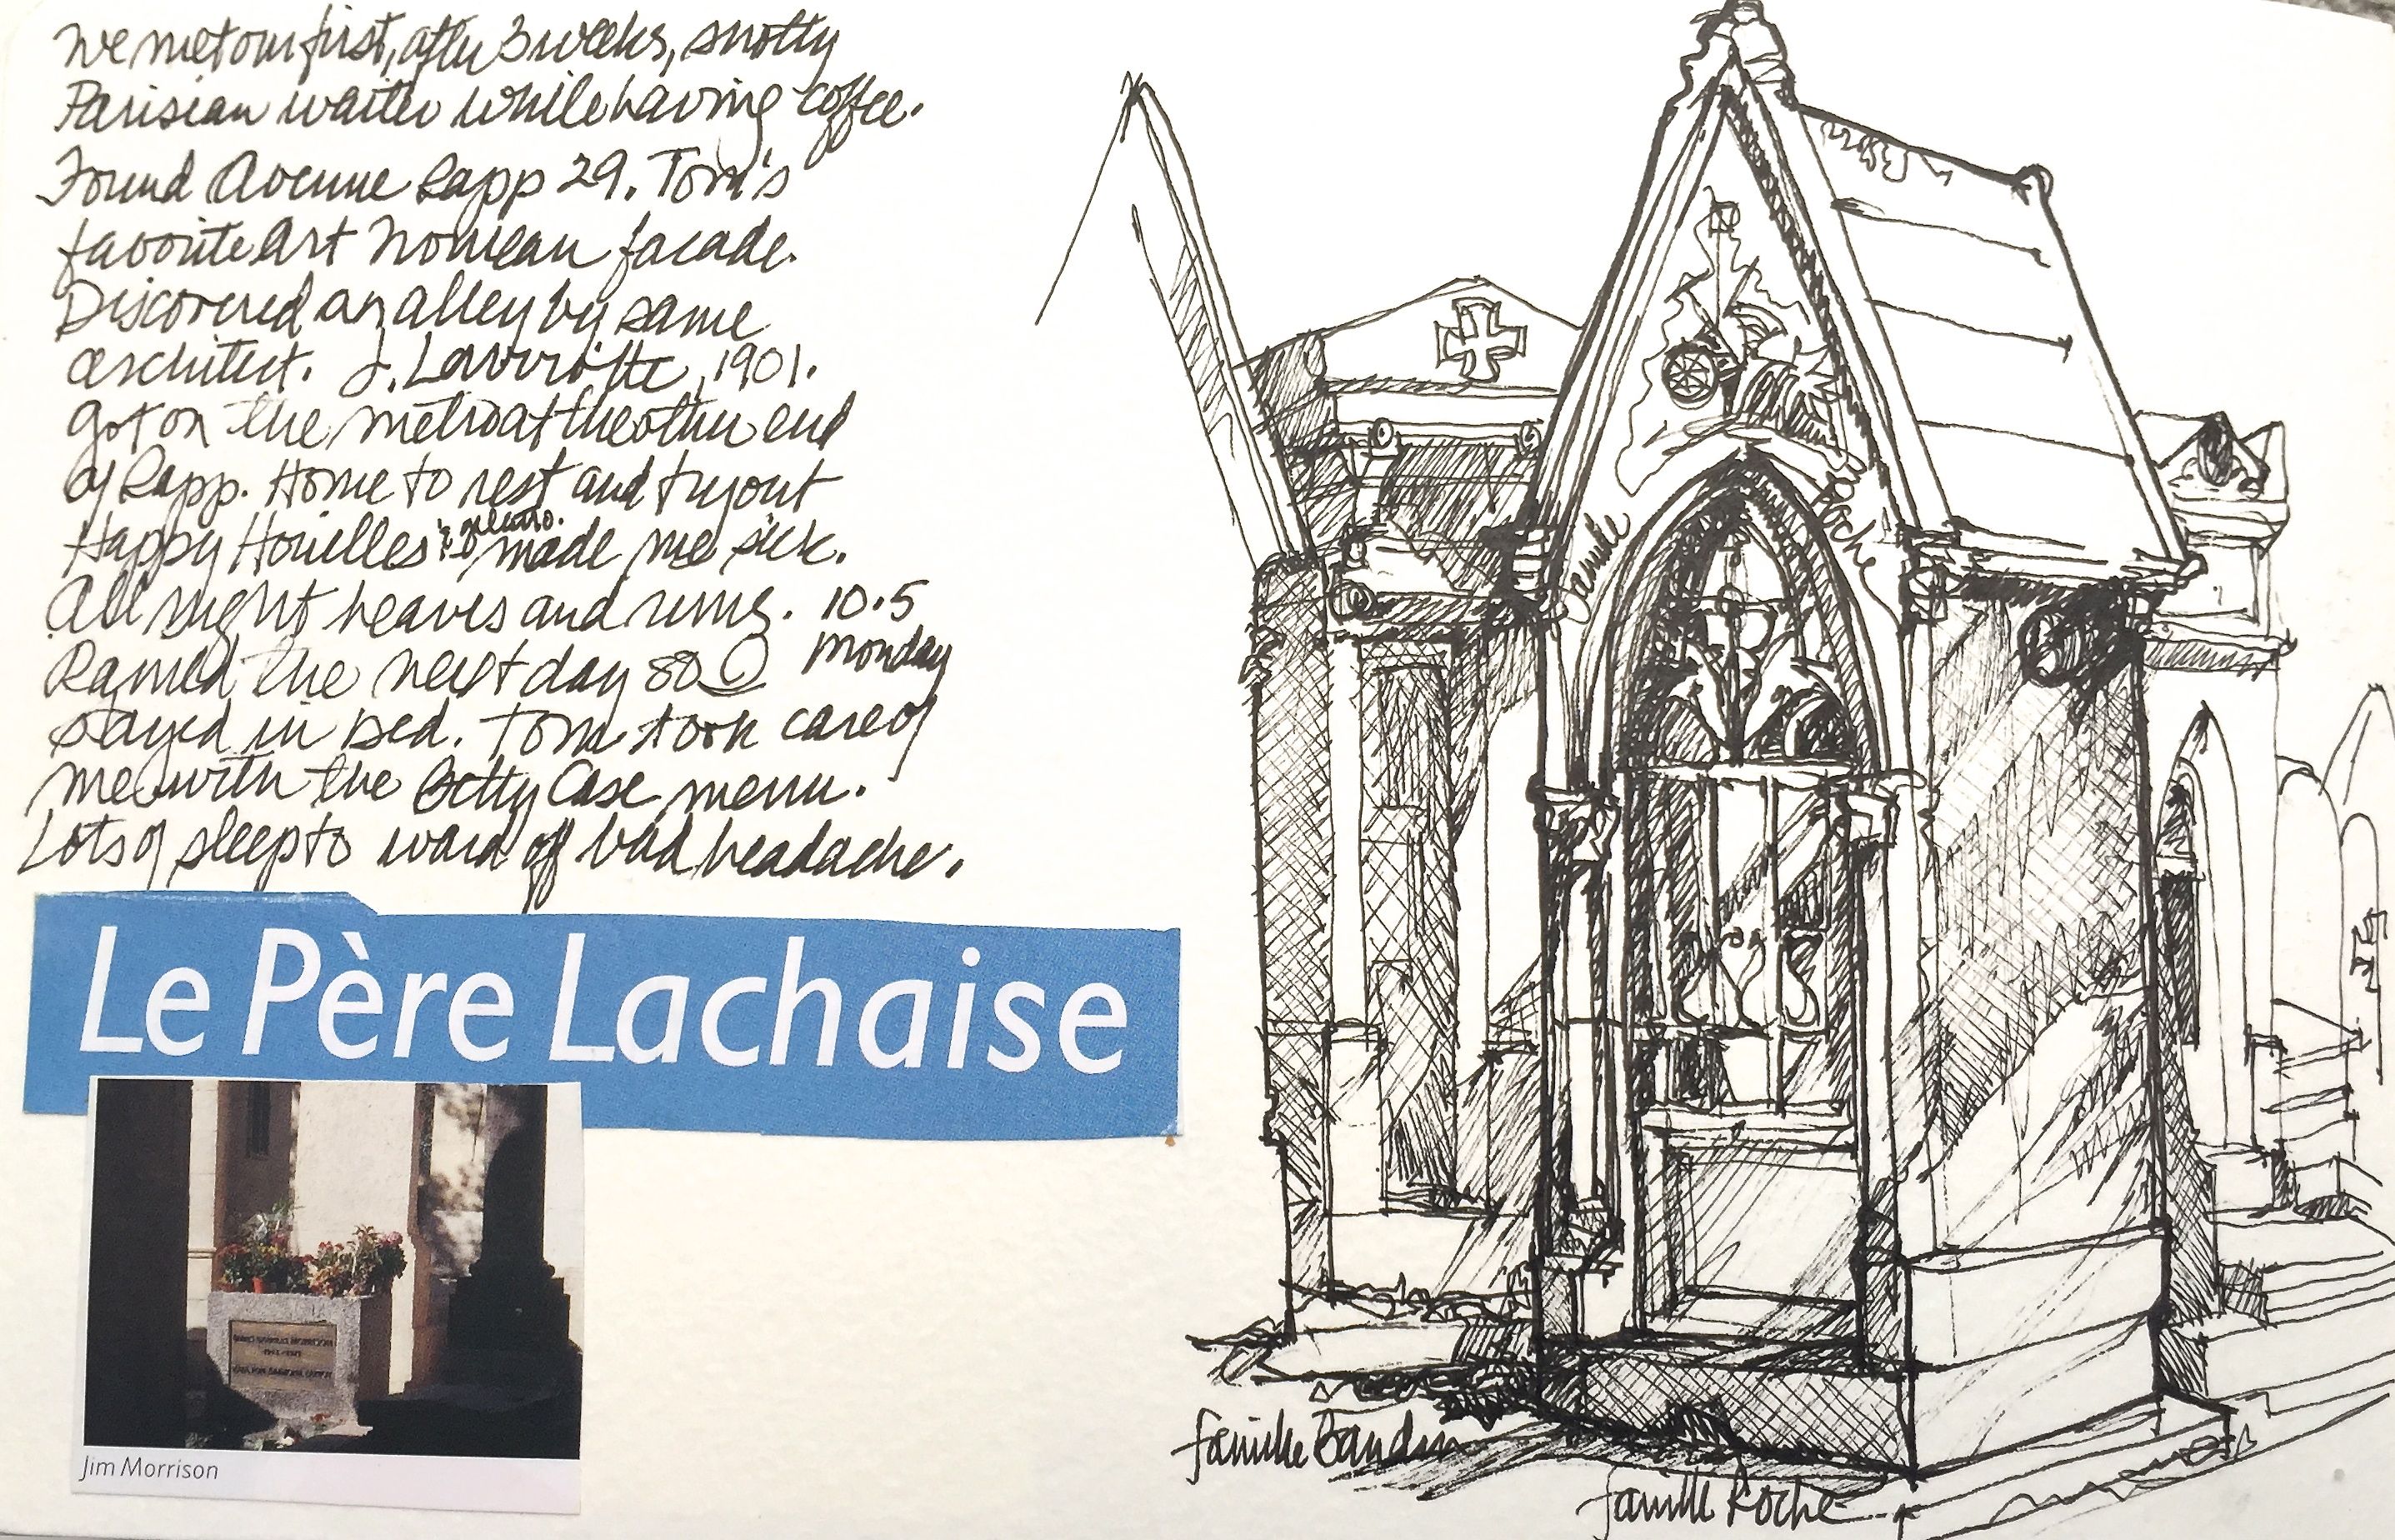 We met our first, after 3 weeks, snotty
Parisian waiter while having coffee.
Found Avenue Rapp 29. Tom's
favorite Art Nouveau facade.
Discovered an alley by same
architect. J. Lavirotte, 1901.
Got on the metro at the other end
of Rapp. Home to rest and try out
Happy Houilles & made me sick.
All night heaves and runs. 10.5
Rained the next day so Monday
stayed in bed. Tom took care of
me with the Betty Case menu.
Lots of sleep to ward off bad headache.
Le Père Lachaise
Jim Morrison
famille Roche
famille Baudin
famille Roche